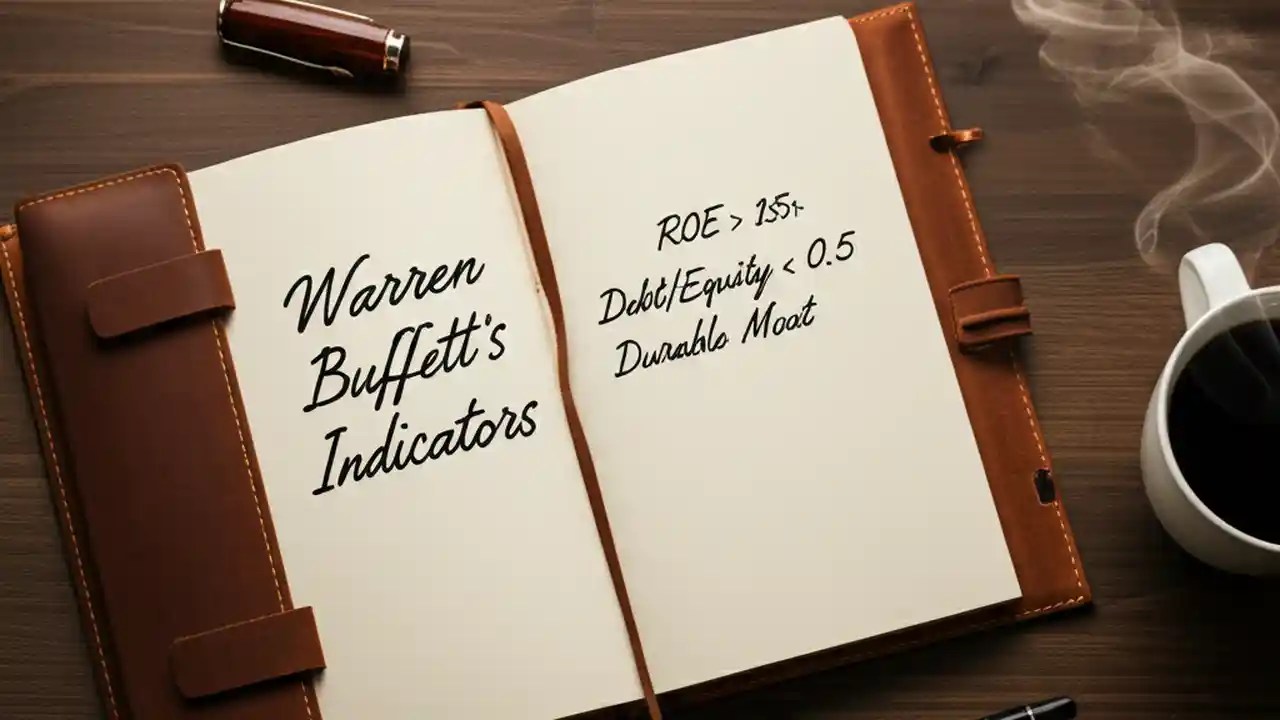 Warren
Buffett's
Indicators
ROE >
Debt/Equity < 0.5
Durable Moat